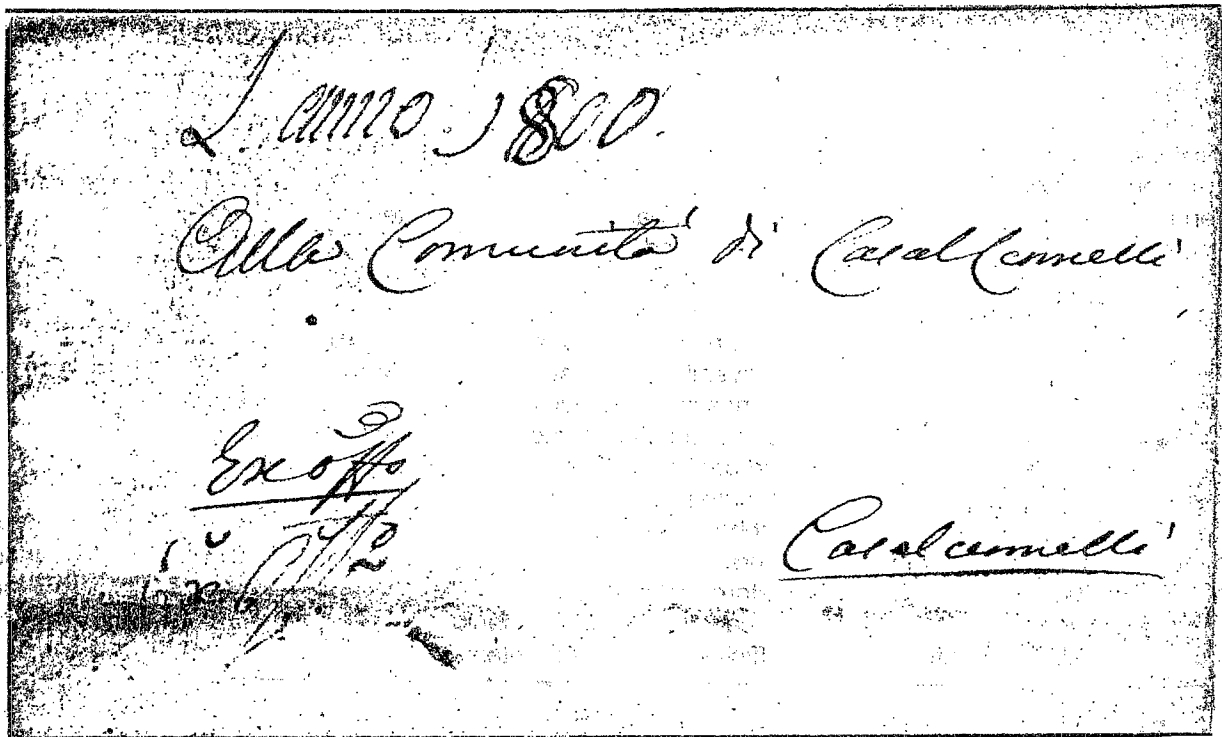 L'anno 1800.
Alla Comunità di CasalCermelli
Ex offo
Casalcermelli